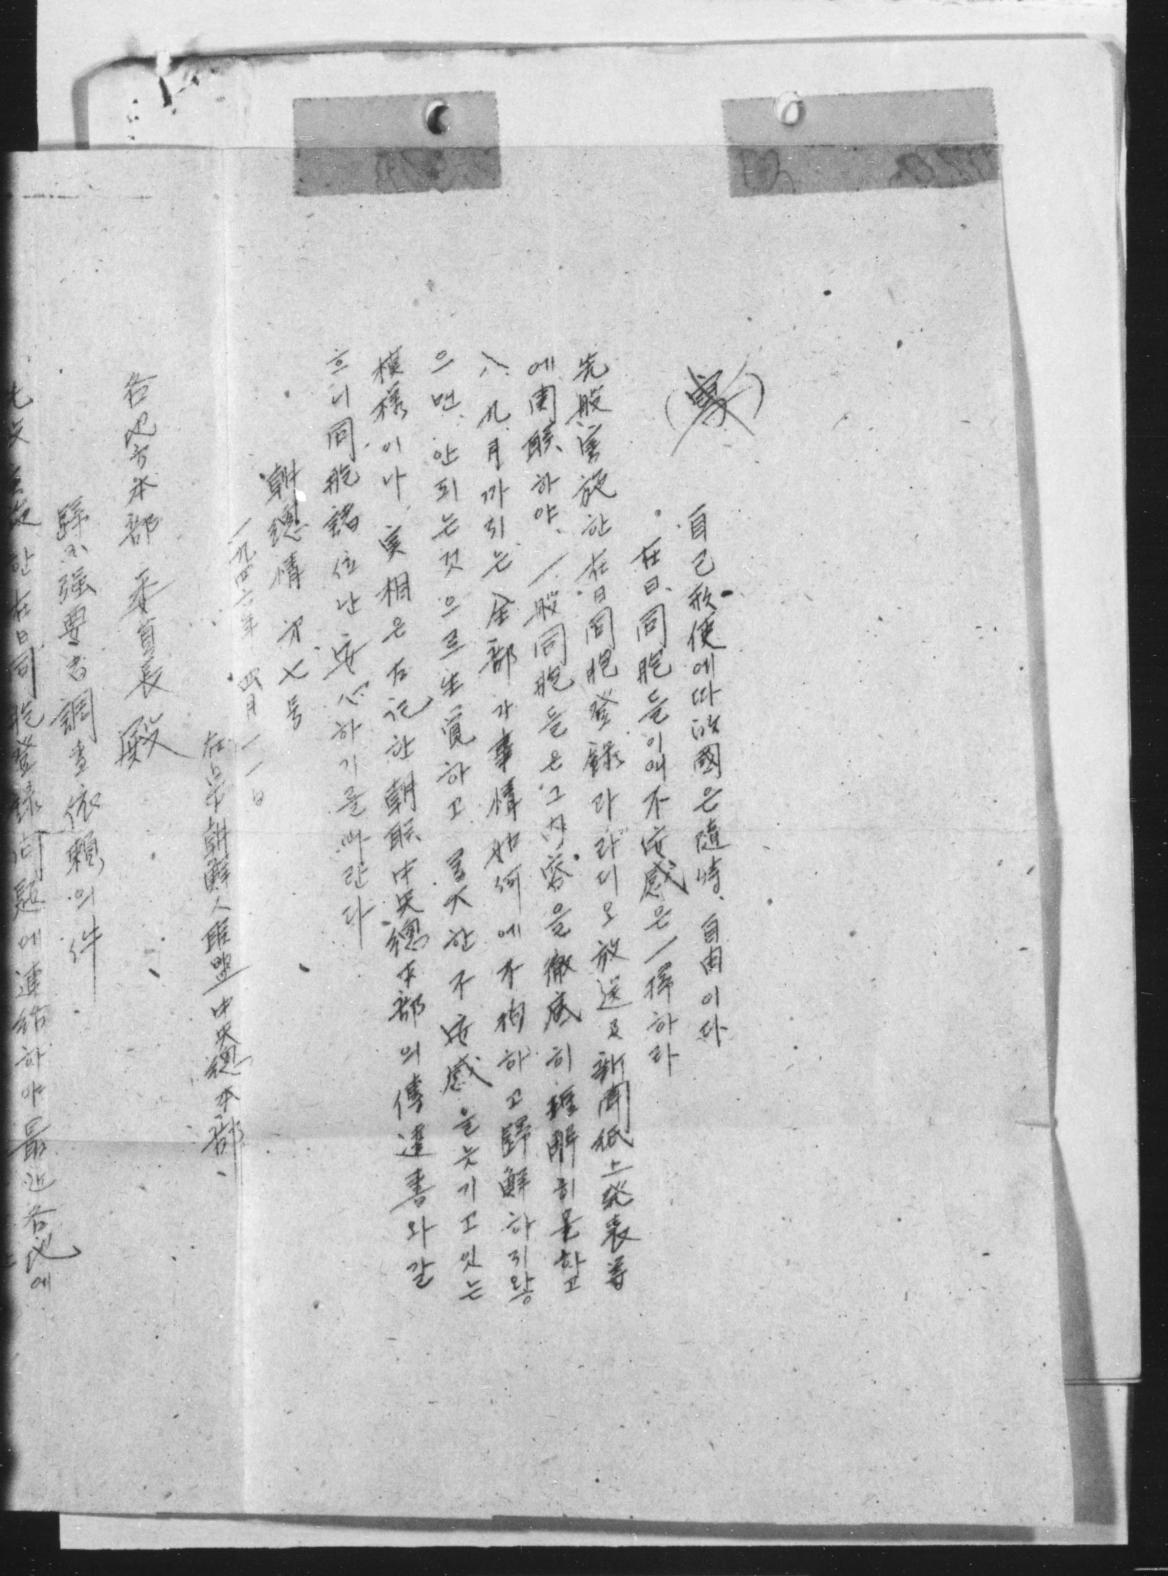 (写)
自己形便에따라歸國은隨時、自由이다
在日同胞들이여不安感은一掃하라
先般実施한在日同胞登録과라디오放送及新聞紙上発表等
에関联하야、一般同胞들은그内容을徹底히理解히못하고
八、九月까지는全部가事情如何에不拘하고歸鮮하지왕
으면、안되는것으로生覚하고、莫大한不安感을늣기고잇는
模様이나、実相은左記한朝联中央總本部의傳達書와갈
흐니同胞諸位난安心하기를바란다
朝總情 次七号
一九四六年 四月 一一日
在日本朝鮮人联盟中央總本部
各地方本部 委員長 殿
歸国強要者調査依頼의件
한在日同胞登録問題에連結하야最近各地에